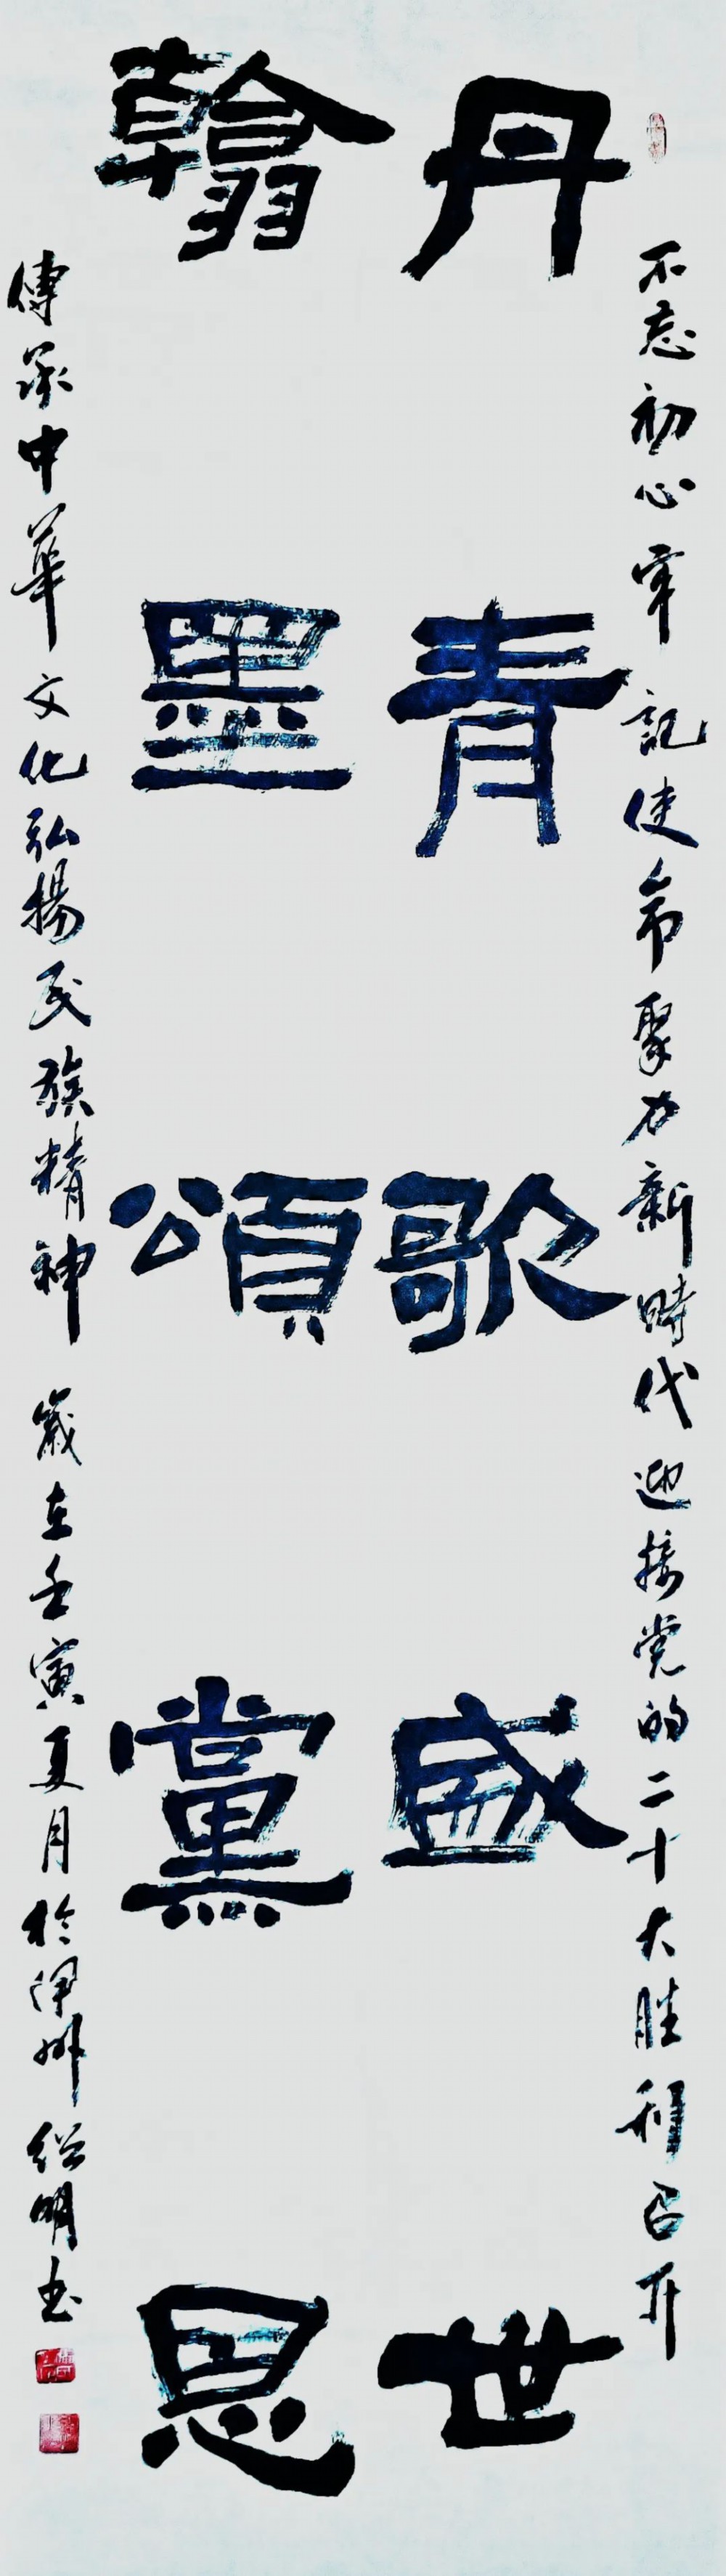 不忘初心牢記使命聚力新時代迎接党的二十大胜利召开
丹青歌盛世
翰墨頌黨恩
傳承中華文化弘揚民族精神 歲在壬寅夏月於伊州 明书